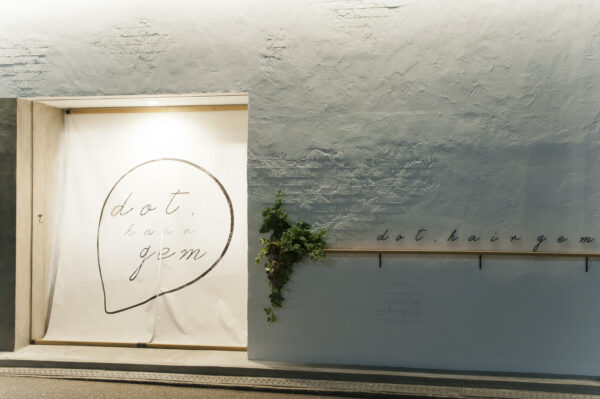 dot.
hair
gem
dot.hair gem